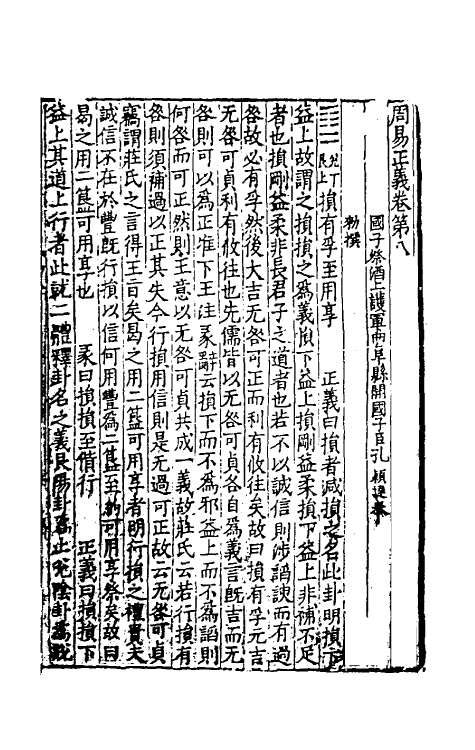 周易正義卷第八
國子祭酒上護軍曲阜縣開國子臣孔 穎達奉
勑撰
䷨兊下艮上損有孚至用享 正義曰損者減損之名此卦明損下
益上故謂之損損之爲義損下益上損剛益柔損下益上非補不足
者也損剛益柔非長君子之道者也若不以誠信則渉諂諛而有過
咎故必有孚然後大吉无咎可正而利有攸往矣故曰損有孚元吉
无咎可貞利有攸往也先儒皆以无咎可貞各自爲義言旣吉而无
咎則可以爲正准下王注彖辭云損下而不爲邪益上而不爲諂則
何咎而可正然則王意以无咎可貞共成一義故莊氏云若行損有
咎則須補過以正其失今行損用信則是无過可正故云无咎可貞
竊謂莊氏之言得王旨矣曷之用二簋可用享者明行損之禮貴夫
誠信不在於豐旣行損以信何用豐爲二簋至約可用享祭矣故曰
曷之用二簋可用享也 彖曰損損至偕行 正義曰損損下
益上其道上行者此就二體釋卦名之義艮陽卦爲止兊隂卦爲說